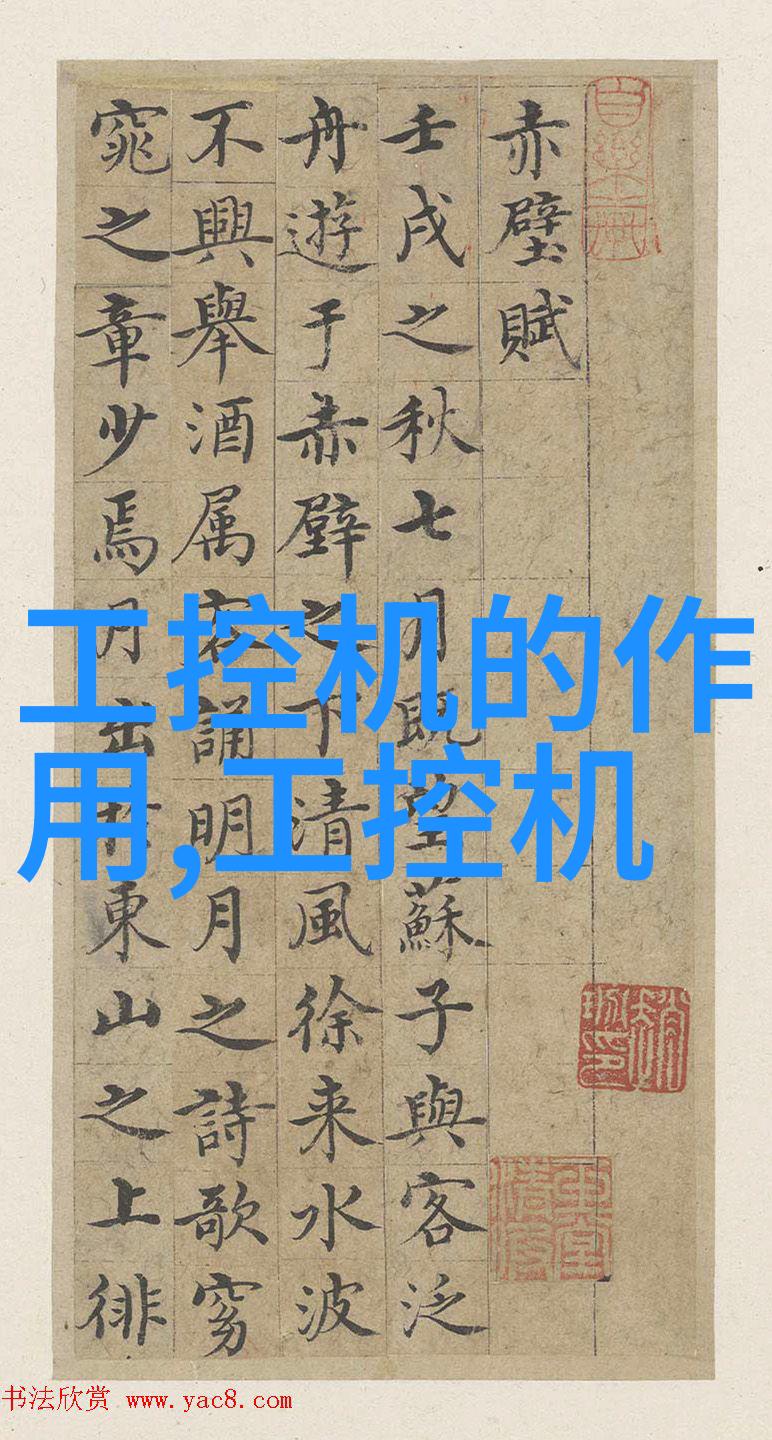 赤壁賦
壬戌之秋七月既望蘇子與客泛
舟遊于赤壁之下清風徐来水波
不興舉酒属客誦明月之詩歌窈
窕之章少焉月出於東山之上徘
工控机的作
用,工控机
书法欣赏 www.yac8.com